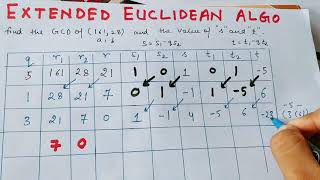 EXTENDED EUCLIDEAN ALGO
find the GCD of (161,28) and the value of "s" and "t".
a, b S = S₁ - qS₂ t = t₁ - qt₂
q r₁ r₂ r S₁ S₂ S t₁ t₂ t
5 161 28 21 1 0 1 0 1 -5
1 28 21 7 0 1 -1 1 -5 6
3 21 7 0 1 -1 4 -5 6 -23
-5 -
7 0